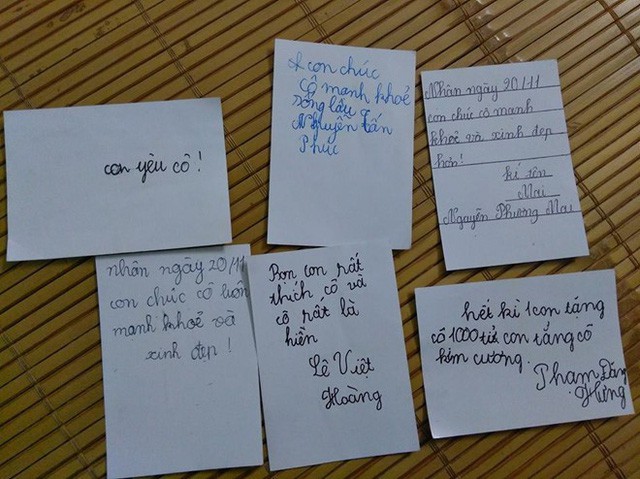 con yêu cô !
& con chúc
cô mạnh khoẻ
sống lâu
Nguyễn Tấn
Phúc
Nhân ngày 20/11
con chúc cô mạnh
khoẻ và xinh đẹp
hơn!
kí tên
Mai
Nguyễn Phương Mai
nhân ngày 20/11
con chúc cô luôn
mạnh khoẻ và
xinh đẹp !
Bọn con rất
thích cô và
cô rất là
hiền
Lê Việt
Hoàng
hết kì 1 con tặng
cô 1000 tỉ con tặng cô
kim cương.
Phạm Đăng
Hưng